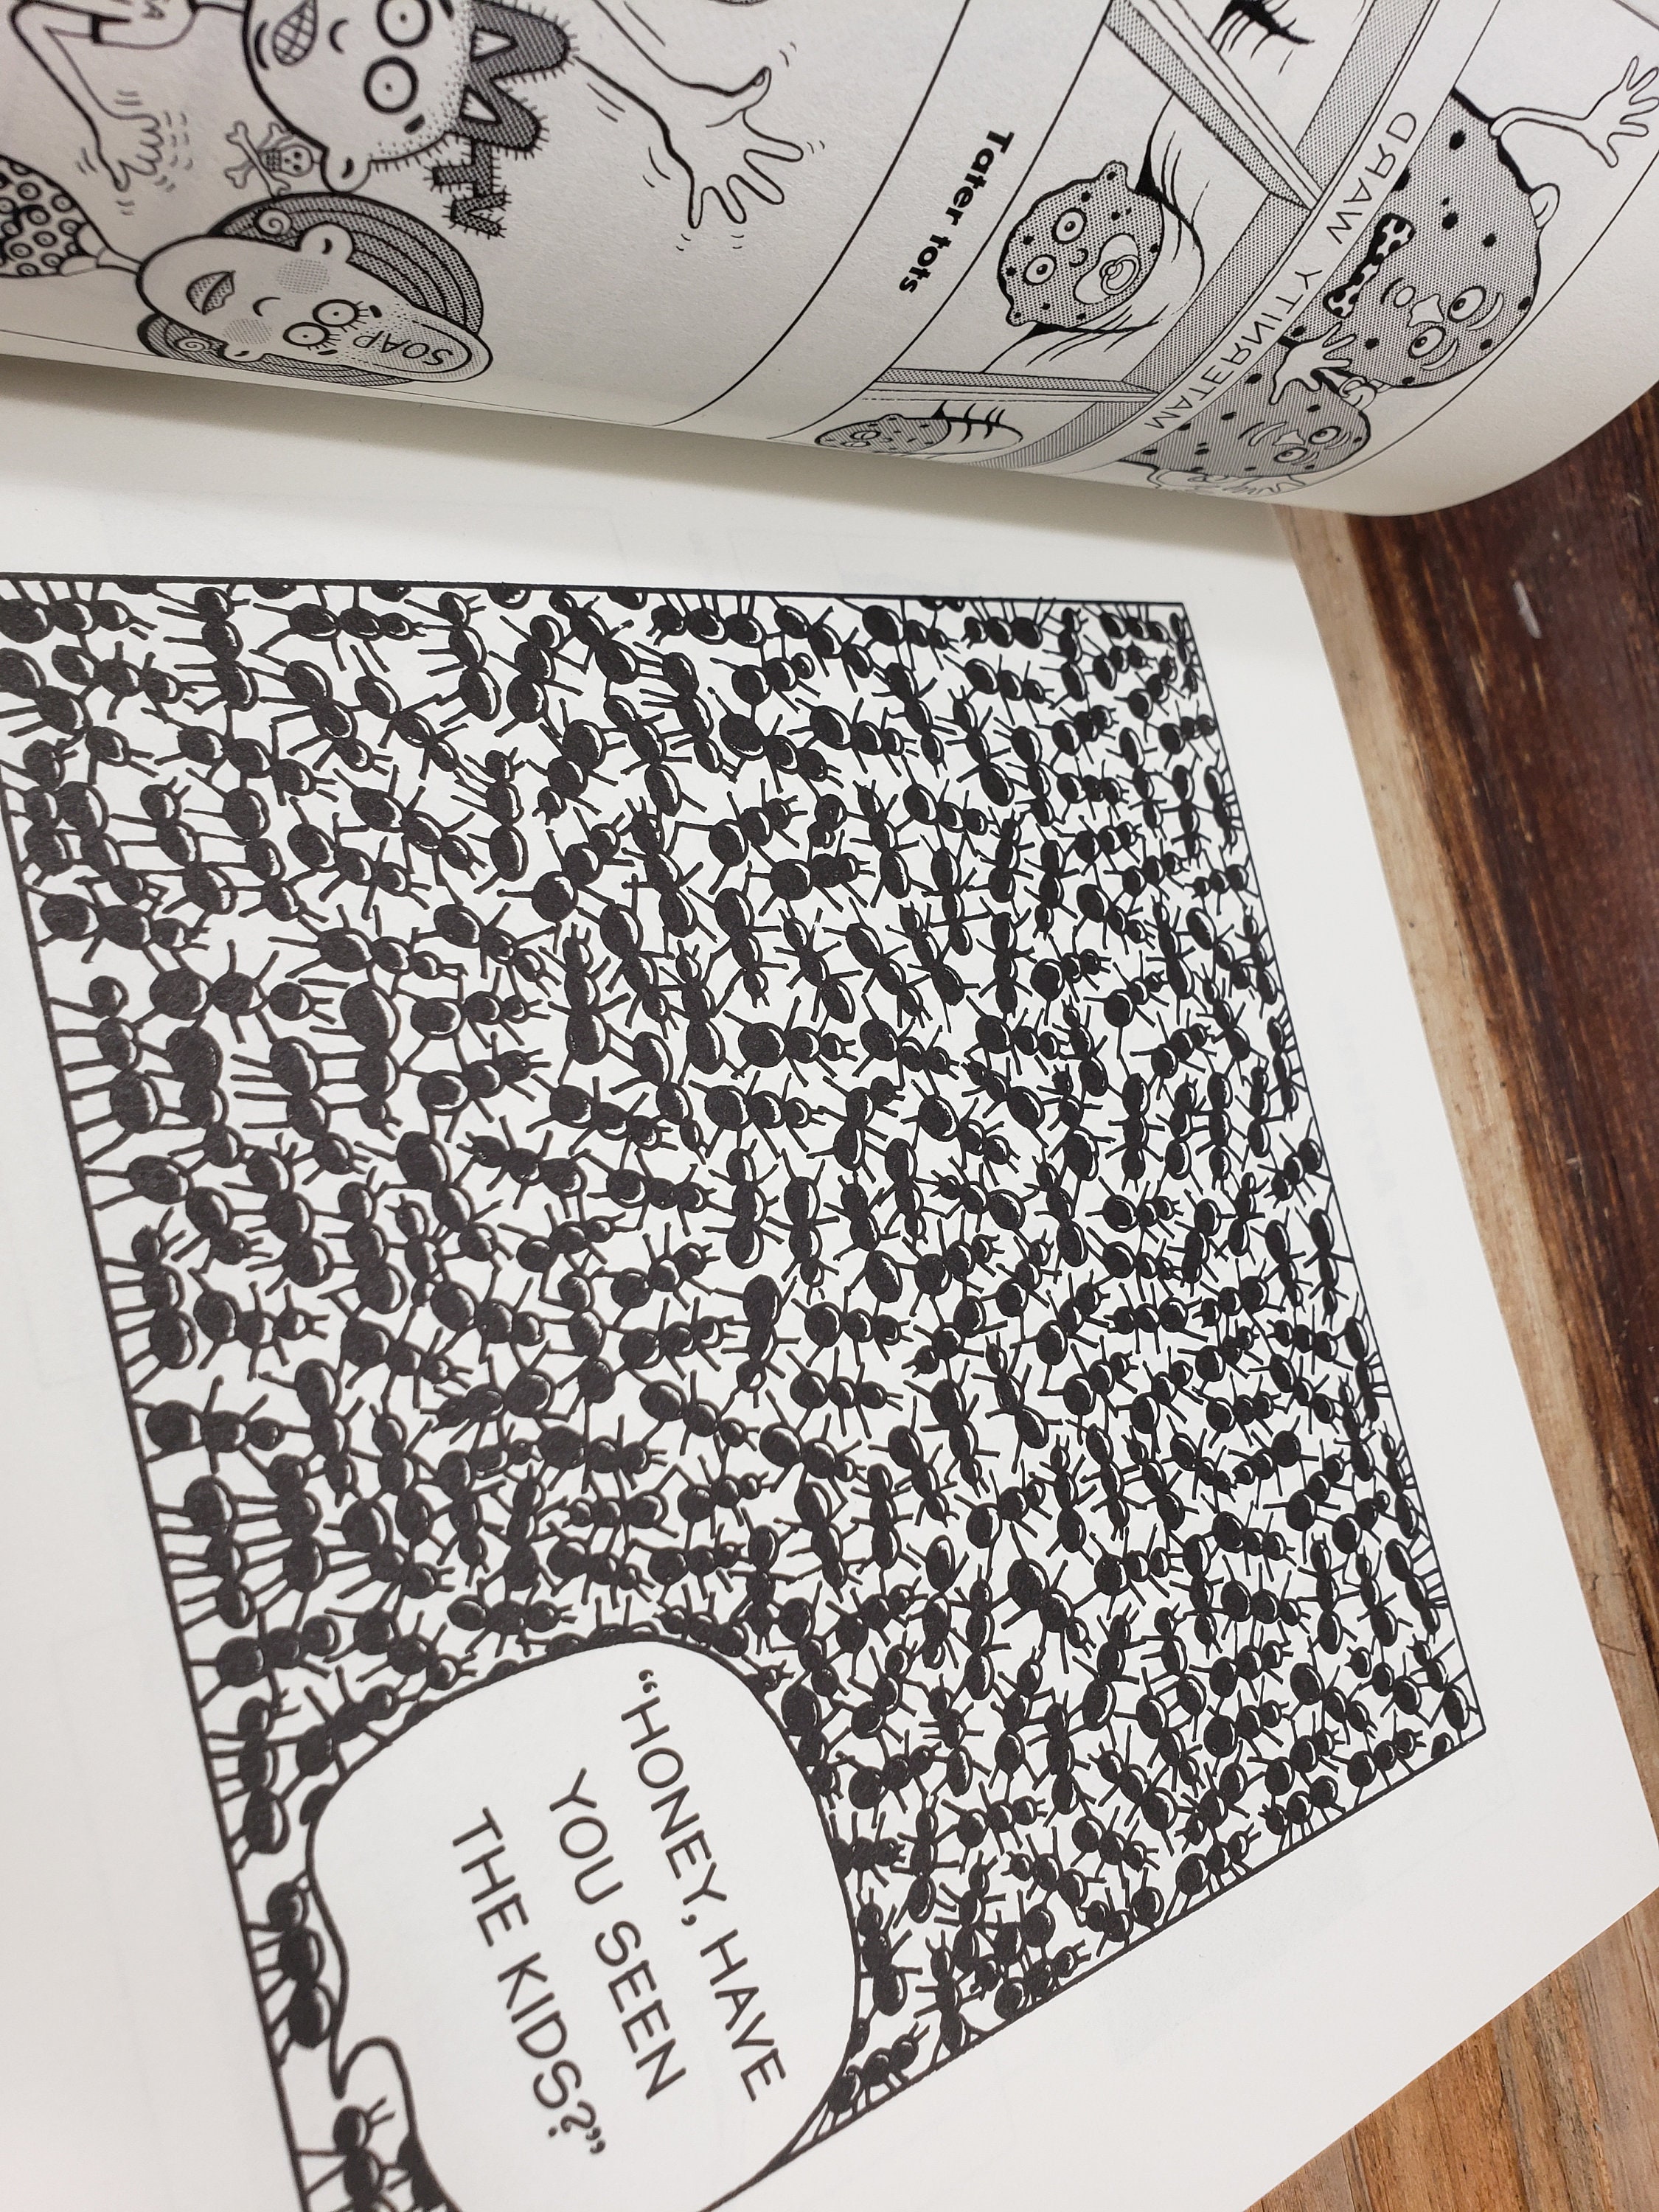 MTV
SOAP
Tater tots
MATERNITY WARD
“HONEY, HAVE
YOU SEEN
THE KIDS?”